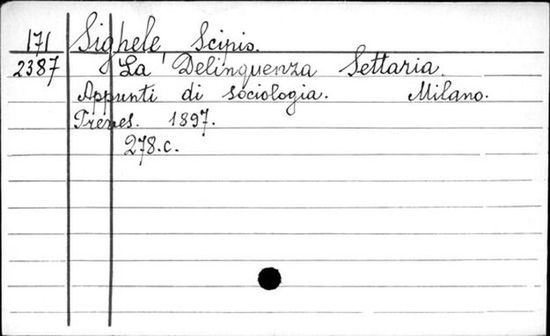 171 Sighele Scipio.
2387 La Delinquenza Settaria.
Appunti di sociologia. Milano.
Treves. 1897.
278.c.